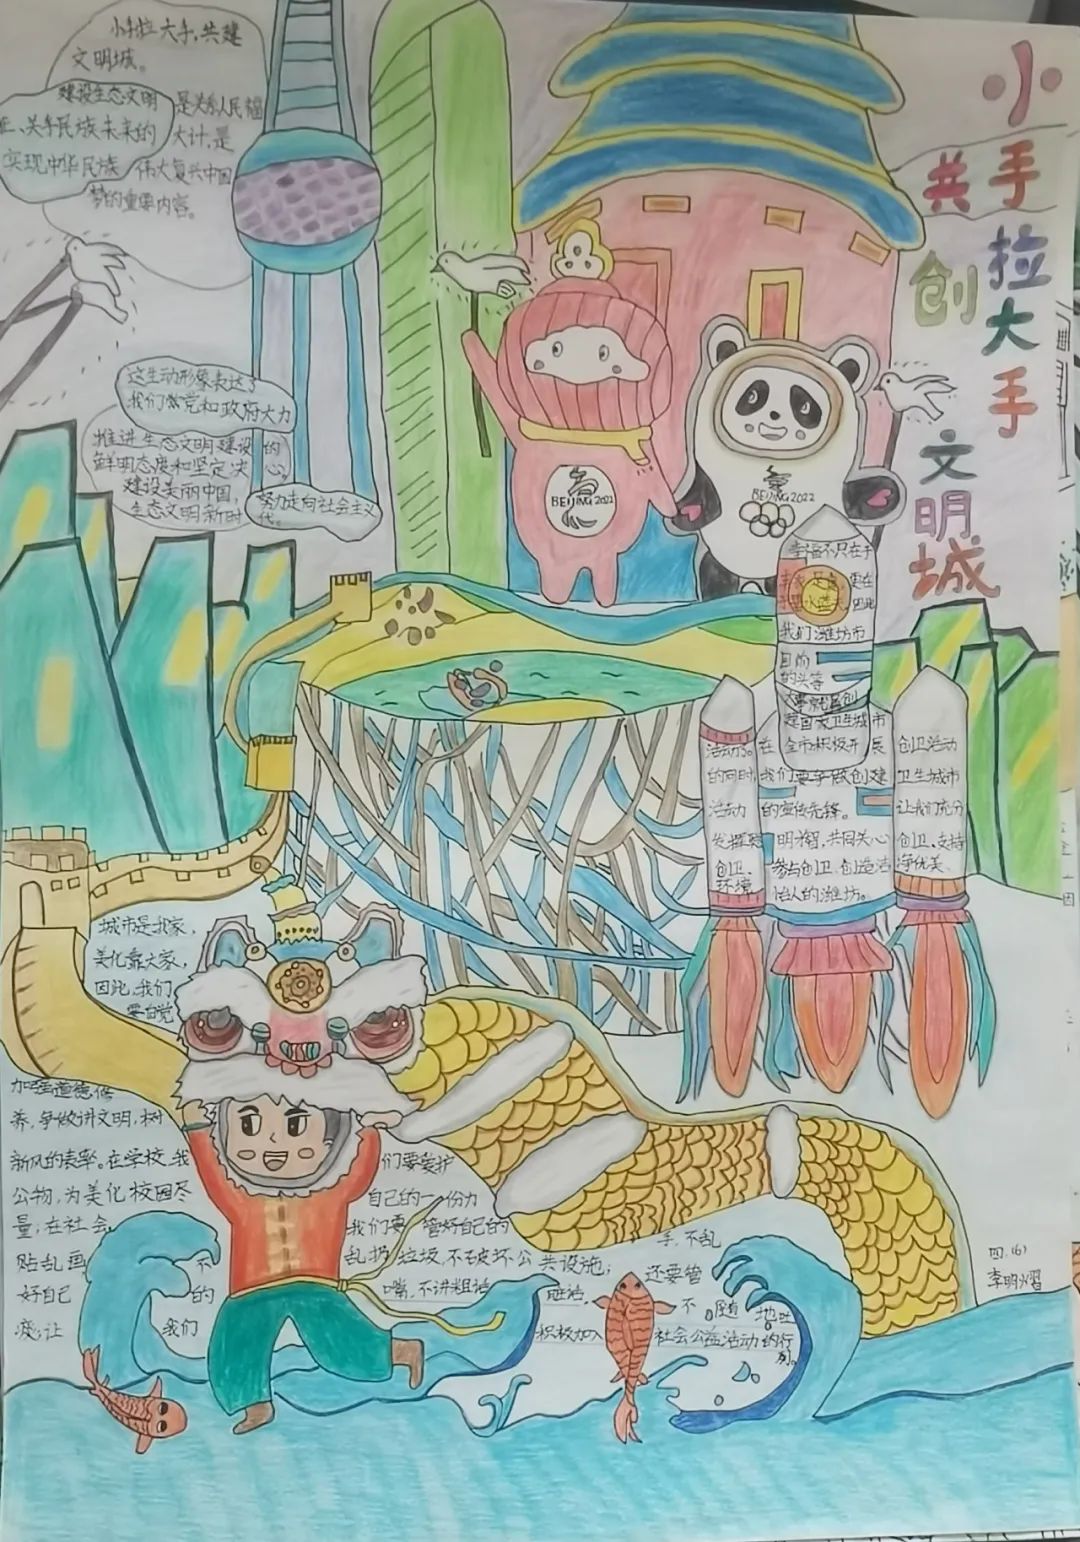 小手拉大手
共创文明城
小手拉大手,共建
文明城。
建设生态文明 是关系人民福
祉、关乎民族未来的 大计,是
实现中华民族 伟大复兴中国
梦的重要内容。
这生动形象表达了
我们常党和政府大力
推进生态文明建设的
鲜明态度和坚定决心,
建设美丽中国,
努力走向社会主义
生态文明新时代。
BEIJING 2022
BEIJING 2022
幸福不只在于
更在
因此
我们潍坊市
目前
的头等
建国家卫生城市
活动。在 全市积极开展 创卫活动
的同时 我们要争做创建 卫生城市
活动 的宣传先锋。 让我们充分
发挥聪 明才智,共同关心 创卫、支持
创卫、 参与创卫,创造洁 净优美、
环境 宜人的潍坊。
城市是我家,
美化靠大家,
因此,我们
要自觉
加强道德修
养,争做讲文明,树
新风的表率。在学校,我 们要爱护
公物,为美化校园尽 自己的一份力
量;在社会, 我们要 管好自己的 手,不乱
贴乱画 不 乱扔垃圾,不破坏公 共设施; 还要管
好自己 的 嘴,不讲粗话 脏话, 不 随 地吐
痰;让 我们 积极加入 社会公益活动的行
列。
四.(6)
李明熠